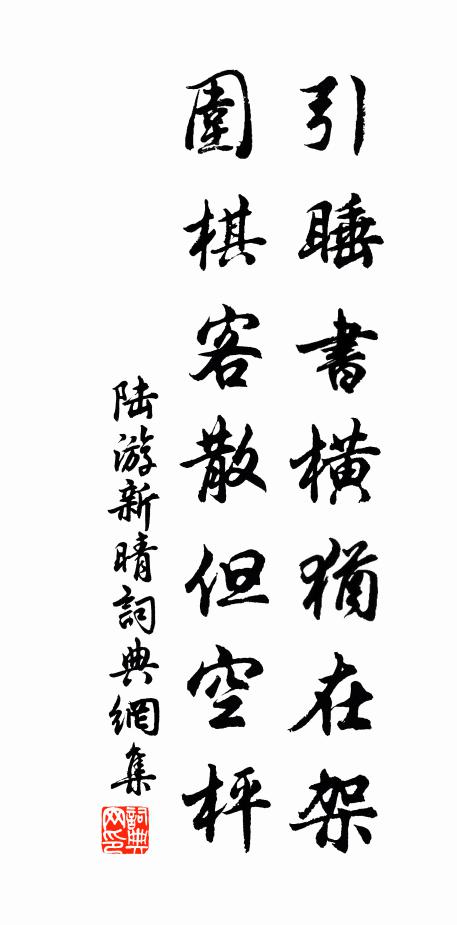 引睡書橫猶在架
圍棋客散但空枰
陆游新晴詞典網集
詞典网印